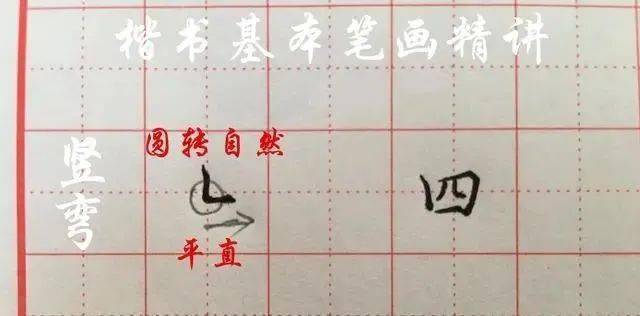 楷书基本笔画精讲
竖弯
圆转自然
平直
四